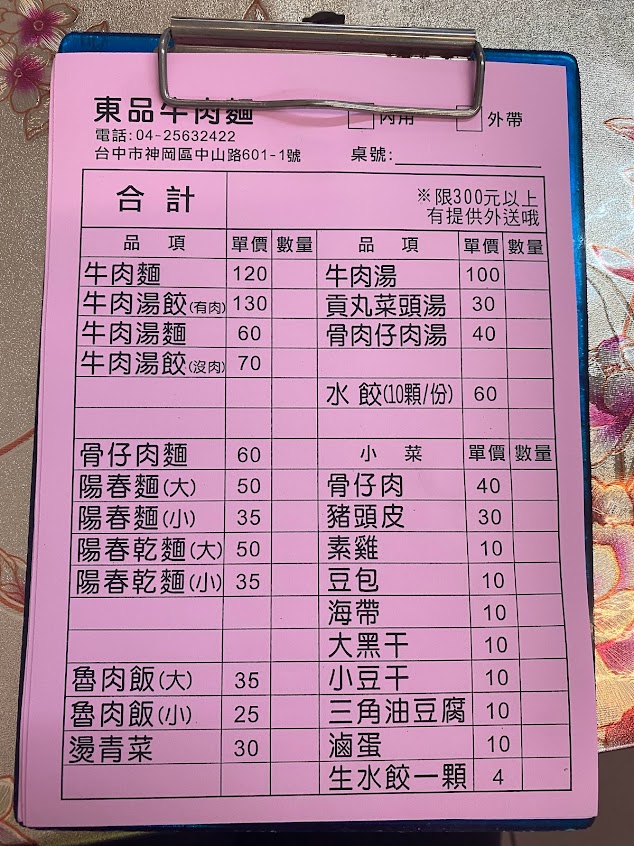 東品牛肉麵
內用 外帶
電話:04-25632422
台中市神岡區中山路601-1號 桌號:
合計 ※限300元以上
有提供外送哦
品項 單價 數量 品項 單價 數量
牛肉麵 120 牛肉湯 100
牛肉湯餃(有肉) 130 貢丸菜頭湯 30
牛肉湯麵 60 骨肉仔肉湯 40
牛肉湯餃(沒肉) 70
水餃(10顆/份) 60
骨仔肉麵 60 小菜 單價 數量
陽春麵(大) 50 骨仔肉 40
陽春麵(小) 35 豬頭皮 30
陽春乾麵(大) 50 素雞 10
陽春乾麵(小) 35 豆包 10
海帶 10
大黑干 10
魯肉飯(大) 35 小豆干 10
魯肉飯(小) 25 三角油豆腐 10
燙青菜 30 滷蛋 10
生水餃一顆 4